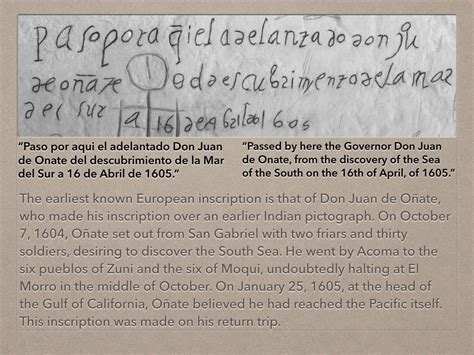 paso por aq̃i el adelantado don ju
de oñate del descubrimento de la mar
del sur a 16 de Abril do 1605
“Paso por aqui el adelantado Don Juan
de Onate del descubrimiento de la Mar
del Sur a 16 de Abril de 1605.”
“Passed by here the Governor Don Juan
de Onate, from the discovery of the Sea
of the South on the 16th of April, of 1605.”
The earliest known European inscription is that of Don Juan de Oñate,
who made his inscription over an earlier Indian pictograph. On October
7, 1604, Oñate set out from San Gabriel with two friars and thirty
soldiers, desiring to discover the South Sea. He went by Acoma to the
six pueblos of Zuni and the six of Moqui, undoubtedly halting at El
Morro in the middle of October. On January 25, 1605, at the head of
the Gulf of California, Oñate believed he had reached the Pacific itself.
This inscription was made on his return trip.